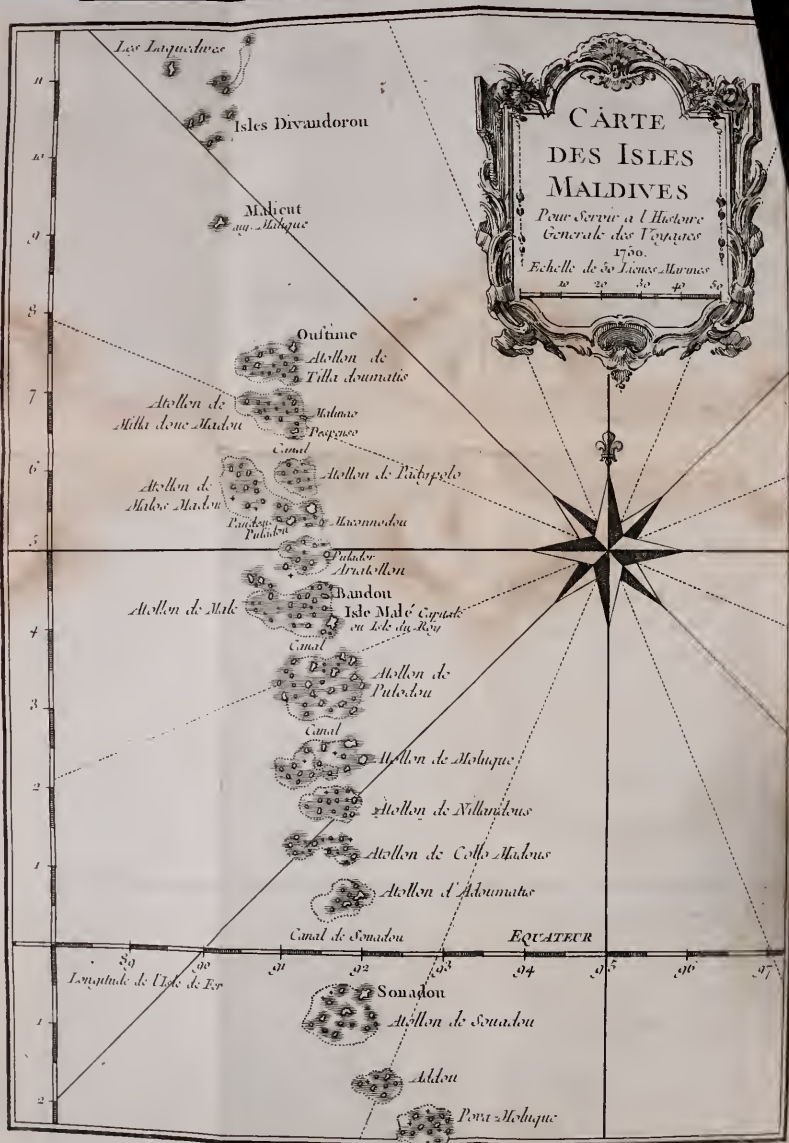 CARTE
DES ISLES
MALDIVES
Pour Servir a l'Histoire
Generale des Voyages
1750.
Echelle de 50 Lieues Marines
10 20 30 40 50
Les Laquedives
Isles Divandorou
Malicut
Oustime
Atollon de
Tilla doumatis
Atollon de
Milla doue Madou
Malmao
Pespenso
Canal
Atollon de Padypolo
Atollon de
Malos Madou
Pandou
Puladou
Maconnodou
Pulador
Ariatollon
Atollon de Male
Bandou
Isle Malé Capitale
ou Isle du Roy
Canal
Atollon de
Pulodou
Canal
Atollon de Moluque
Atollon de Nillandous
Atollon de Collo Madous
Atollon d'Adoumatis
Canal de Souadou
EQUATEUR
89 90 91 92 93 94 95 96 97
Longitude de l'Isle de Fer
Souadou
Atollon de Souadou
Addou
Pova-Moluque
11
10
9
8
7
6
5
4
3
2
1
1
2